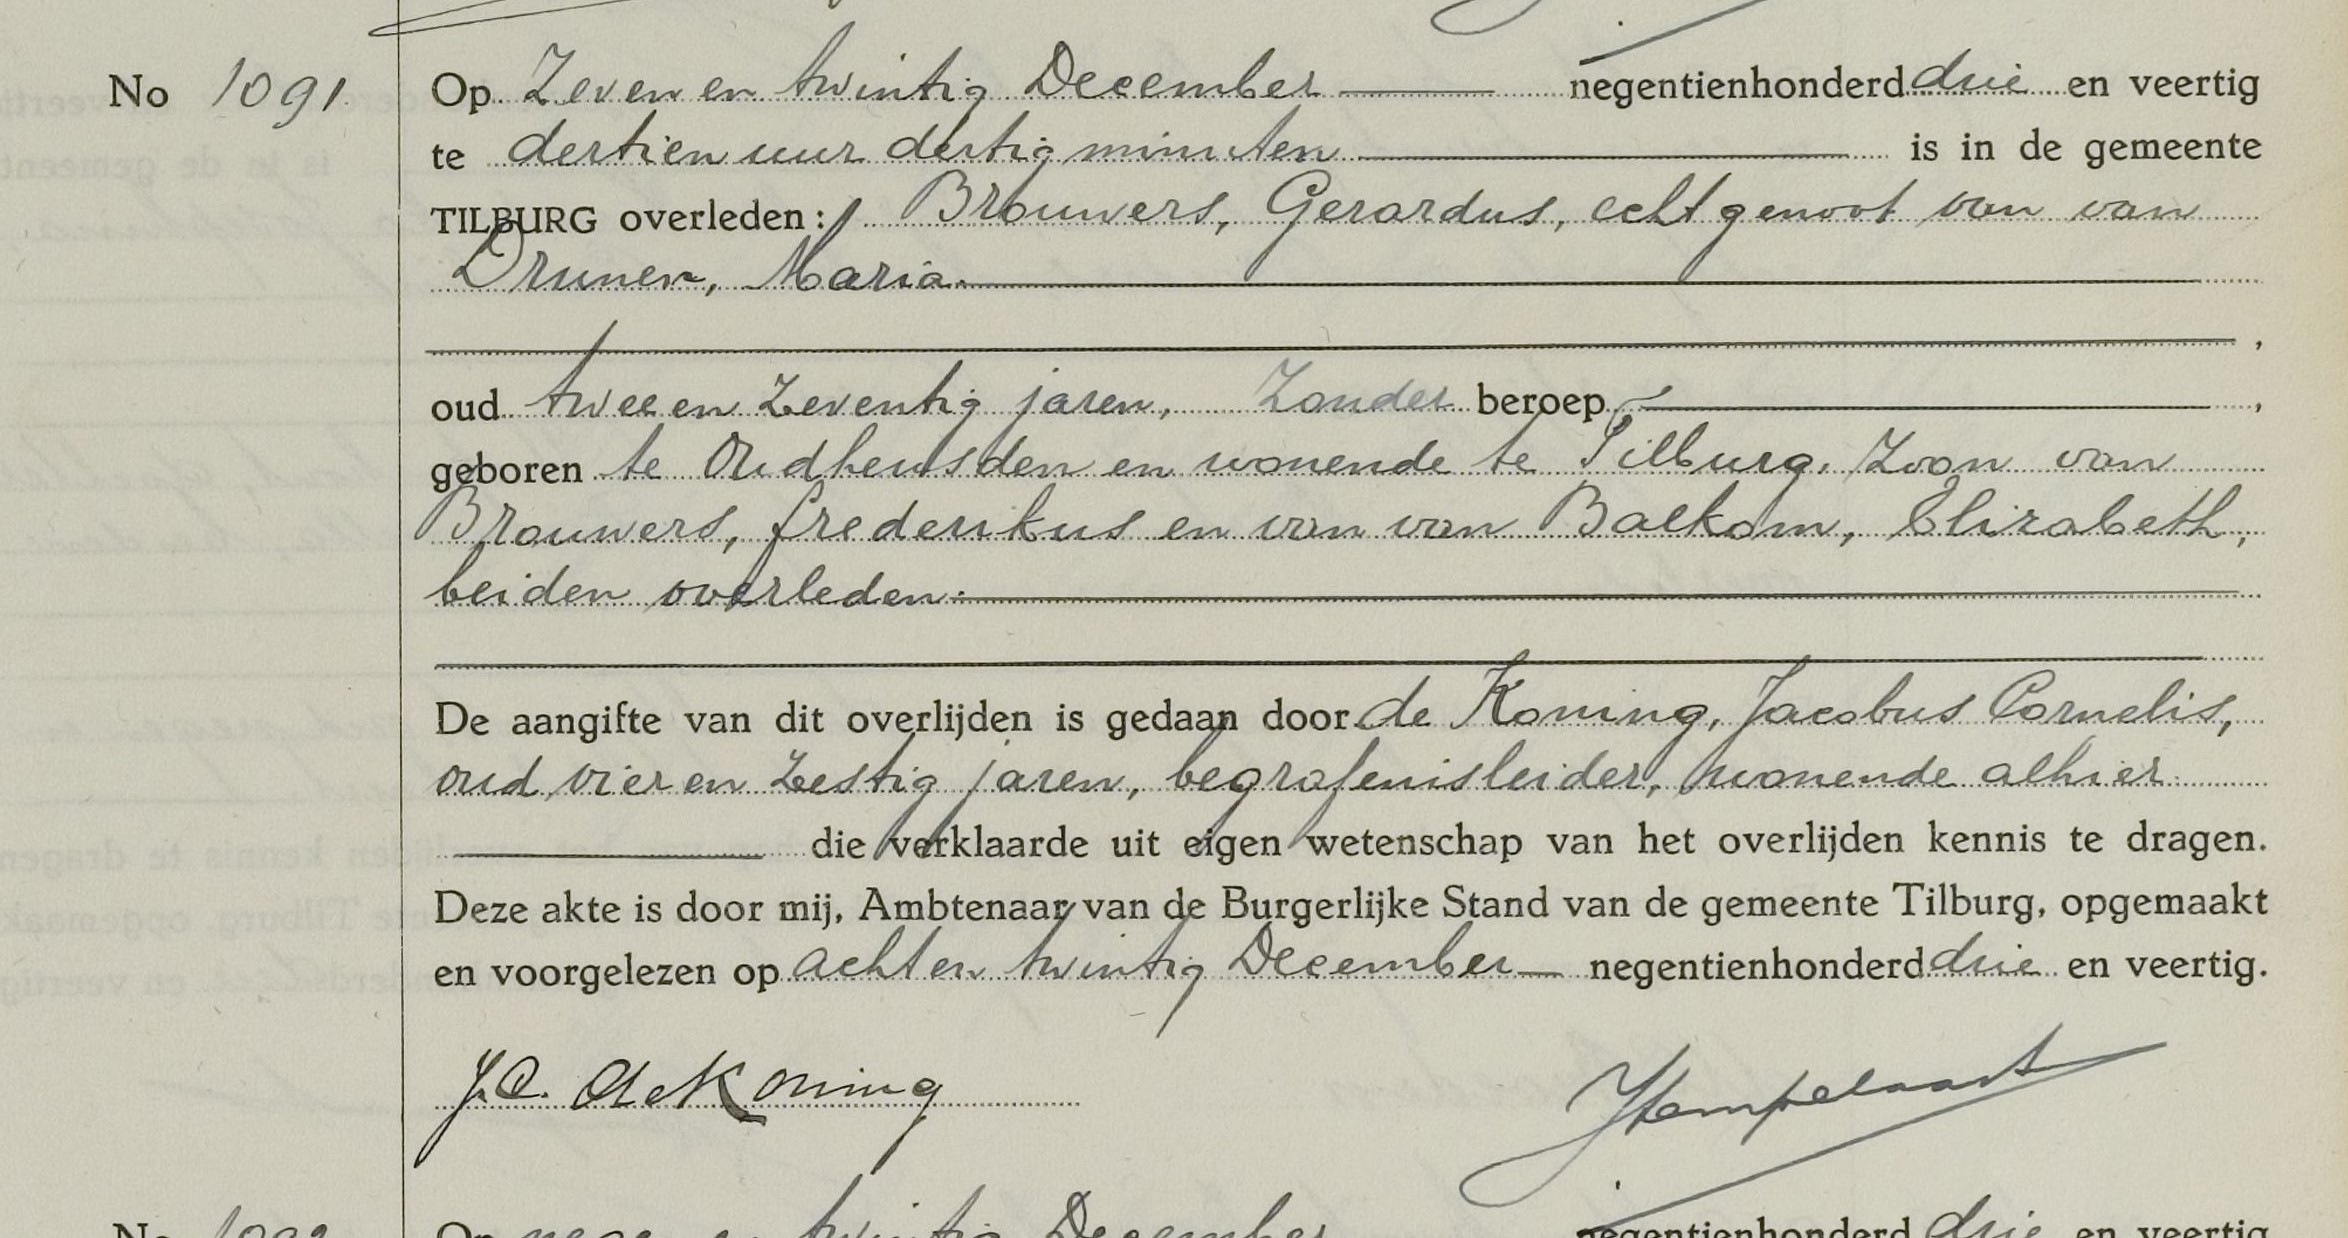 No 1091. Op Zeven en twintig December negentienhonderd drie en veertig
te dertien uur dertig minuten is in de gemeente
TILBURG overleden: Brouwers, Gerardus, echtgenoot van van
Drunen, Maria.
,
oud twee en zeventig jaren, Zonder beroep,
geboren te Oudheusden en wonende te Tilburg, Zoon van
Brouwers, frederikus en van van Balkom, Elizabeth,
beiden overleden.
De aangifte van dit overlijden is gedaan door de Koning, Jacobus Cornelis,
oud vier en zestig jaren, begrafenisleider, wonende alhier
die verklaarde uit eigen wetenschap van het overlijden kennis te dragen.
Deze akte is door mij, Ambtenaar van de Burgerlijke Stand van de gemeente Tilburg, opgemaakt
en voorgelezen op acht en twintig December negentienhonderd drie en veertig.
J.C. de Koning
No 1092 Op twintig December negentienhonderd drie en veertig